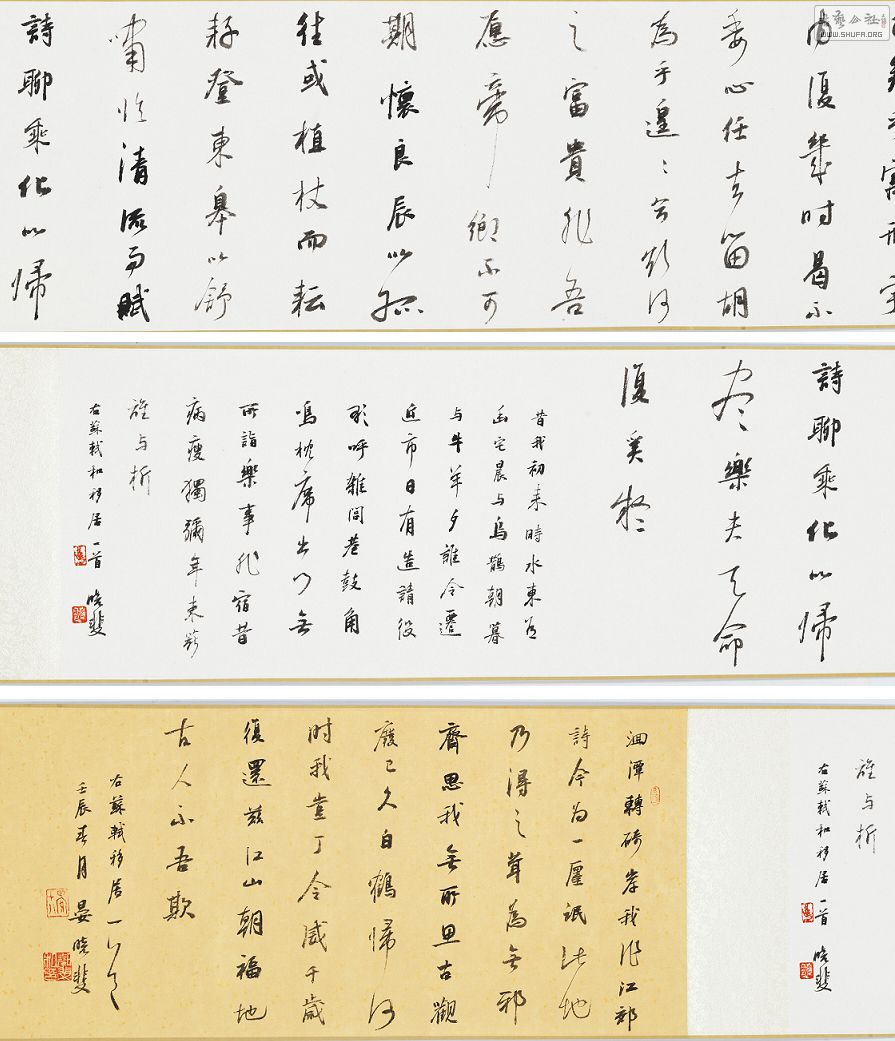 寓形宇
内復幾时曷不
委心任去留胡
為乎遑〻兮欲何
之富貴非吾
愿帝鄉不可
期懷良辰以孤
往或植杖而耘
耔登東皋以舒
嘯临清流而賦
詩聊乘化以歸
詩聊乘化以歸
尽樂夫天命
復奚疑
昔我初来時水東有
幽宅晨与烏鵲朝暮
与牛羊夕誰令遷
近市日有造請役
歌呼雜閭巷鼓角
鳴枕席出门無
所詣樂事非宿昔
病瘦獨彌年束薪
誰与析
右蘇軾和移居一首 晓斐
誰与析
右蘇軾和移居一首 晓斐
洄潭轉碕岸我作江郊
詩今为一廛氓此地
乃得之葺為無邪
齋思我無所思古觀
廢已久白鶴歸何
时我豈丁令威千歲
復還兹江山朝福地
古人不吾欺
右蘇軾移居一首
壬辰春月晏晓斐
WWW.SHUFA.ORG